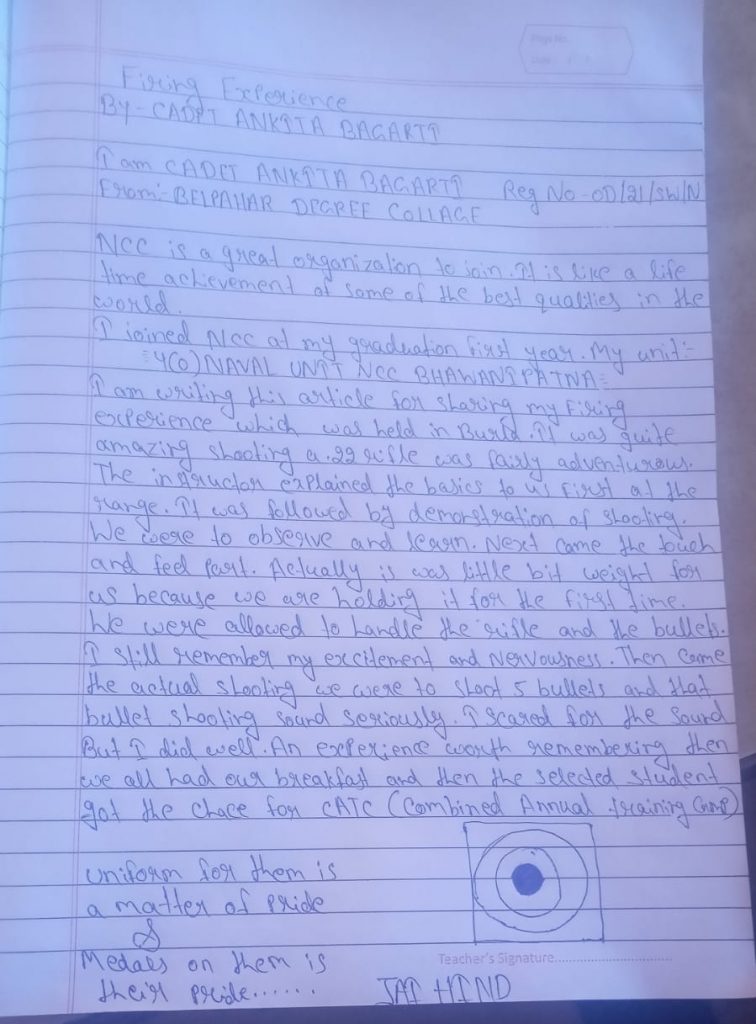 Page No.
Date / /
Firing Experience
By - CADET ANKITA BAGARTI
I am CADET ANKITA BAGARTI Reg No - OD/21/SW/N
From:- BELPAHAR DEGREE COLLAGE
NCC is a great organization to join. It is like a life
time achievement of some of the best qualities in the
world.
I joined NCC at my graduation first year. My unit:-
4(O) NAVAL UNIT NCC BHAWANIPATNA
I am writing this article for sharing my Firing
experience which was held in Burla. It was quite
amazing shooting a .22 rifle was fairly adventurous.
The instructor explained the basics to us first at the
range. It was followed by demonstration of shooting.
We were to observe and learn. Next came the touch
and feel part. Actually is was little bit weight for
us because we are holding it for the first time.
We were allowed to handle the rifle and the bullets.
I still remember my excitement and Nervousness. Then came
the actual shooting we were to shoot 5 bullets and that
bullet shooting sound seriously. I scared for the sound
But I did well. An experience worth remembering then
we all had our breakfast and then the selected student
got the chace for CATC (Combined Annual training Camp)
uniform for them is
a matter of pride
&
Medals on them is
their pride......
Teacher's Signature..............................
JAI HIND